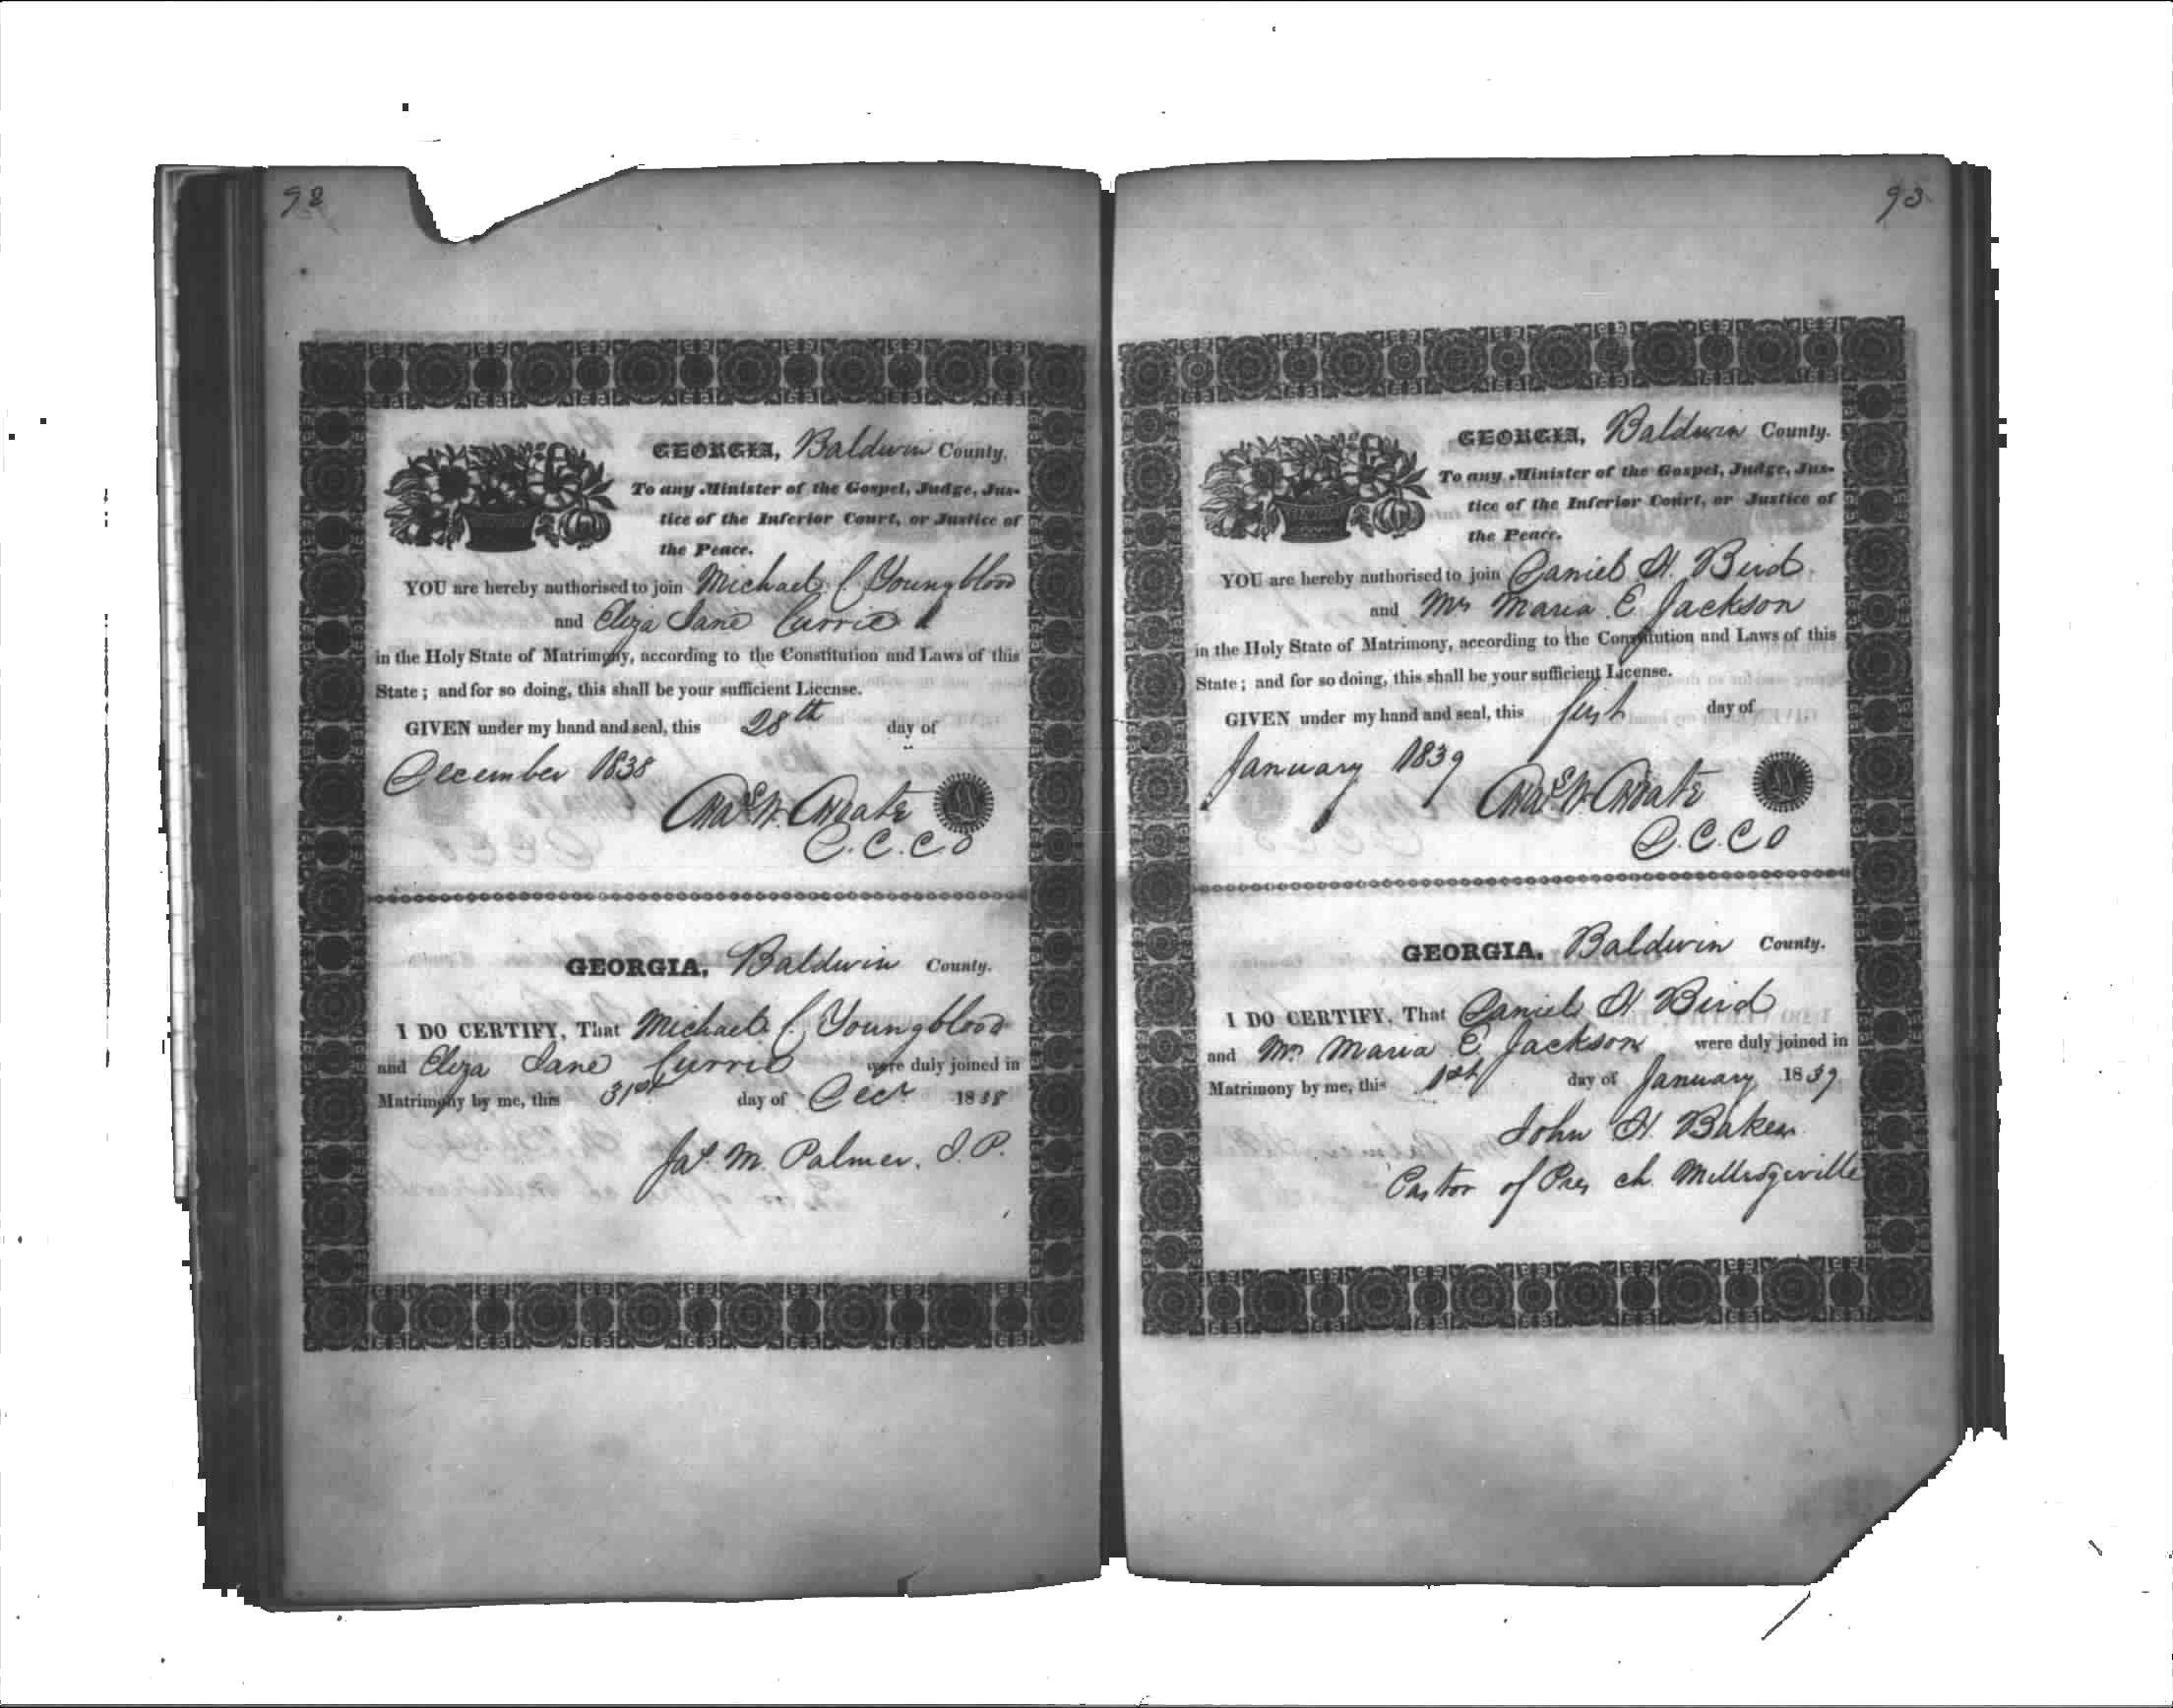 92
GEORGIA, Baldwin County.
To any Minister of the Gospel, Judge, Jus-
tice of the Inferior Court, or Justice of
the Peace.
YOU are hereby authorised to join Michael C. Youngblood
and Eliza Jane Currie
in the Holy State of Matrimony, according to the Constitution and Laws of this
State; and for so doing, this shall be your sufficient License.
GIVEN under my hand and seal, this 28th day of
December 1838
Chas W. Choate
C.C.C.O
GEORGIA, Baldwin County.
I DO CERTIFY, That Michael C. Youngblood
and Eliza Jane Currie were duly joined in
Matrimony by me, this 31st day of Decr 1838
Jas. M. Palmer, J.P.
93
GEORGIA, Baldwin County.
To any Minister of the Gospel, Judge, Jus-
tice of the Inferior Court, or Justice of
the Peace.
YOU are hereby authorised to join Daniel H. Bird
and Mrs Maria E. Jackson
in the Holy State of Matrimony, according to the Constitution and Laws of this
State; and for so doing, this shall be your sufficient License.
GIVEN under my hand and seal, this first day of
January 1839
Chas W. Choate
C.C.C.O
GEORGIA, Baldwin County.
I DO CERTIFY, That Daniel H Bird
and Mrs Maria E. Jackson were duly joined in
Matrimony by me, this 1st day of January 1839
John H. Baker
Pastor of Pres ch. Milledgeville